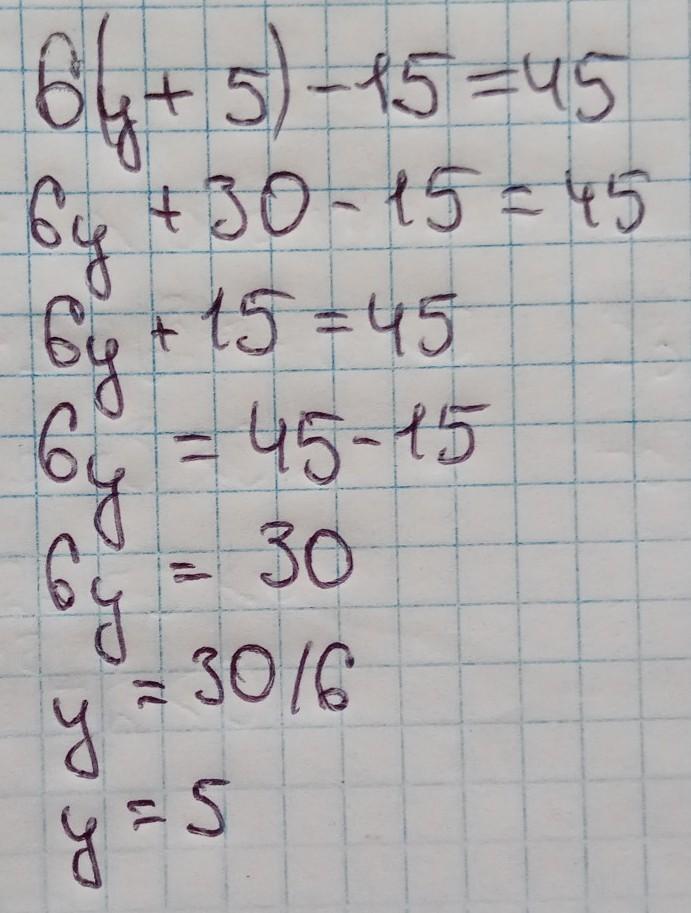 6(y + 5) - 15 = 45
6y + 30 - 15 = 45
6y + 15 = 45
6y = 45 - 15
6y = 30
y = 30/6
y = 5